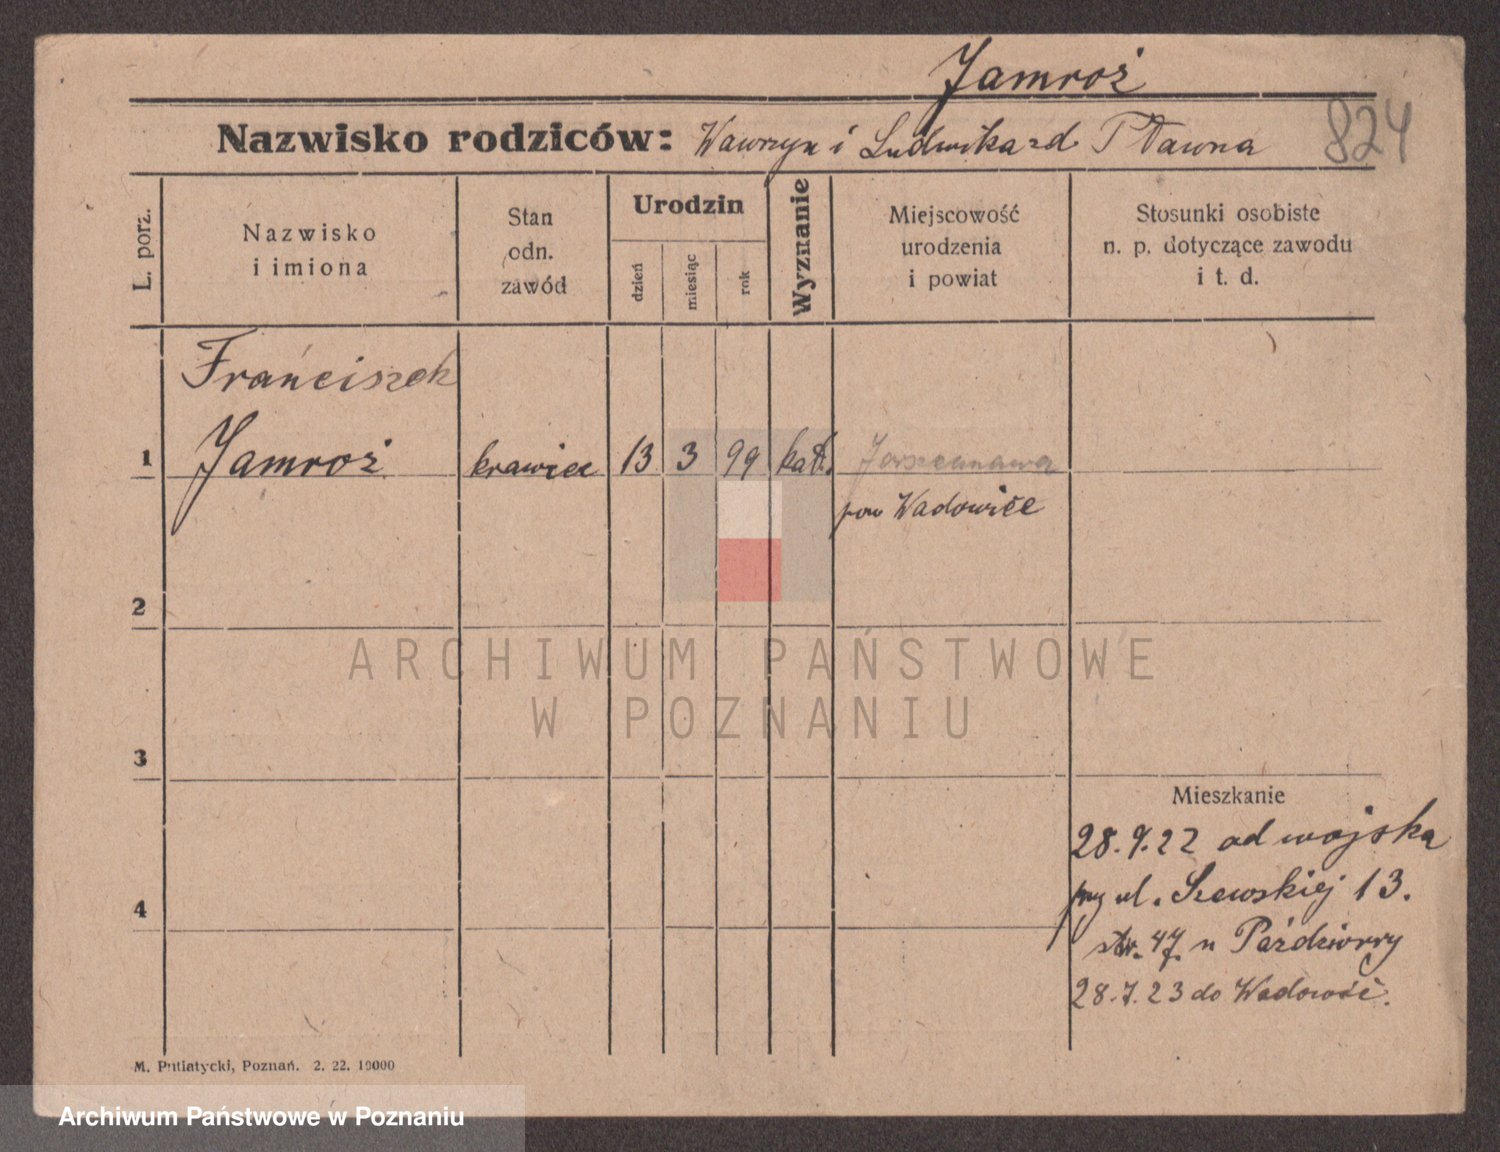 Jamroż
Nazwisko rodziców: Wawrzyn i Ludwika zd. Pławna
824
L. porz.
Nazwisko
i imiona
Stan
odn.
zawód
Urodzin
dzień
miesiąc
rok
Wyznanie
Miejscowość
urodzenia
i powiat
Stosunki osobiste
n. p. dotyczące zawodu
i t. d.
Franciszek
1 Jamroż krawiec 13 3 99 kat.
pow Wadowice
2
ARCHIWUM PAŃSTWOWE
W POZNANIU
3
Mieszkanie
28.9.22 od wojska
przy ul. Szewskiej 13.
4
str. 47. u
28.7.23 do Wadowic.
M. Putiatycki, Poznań. 2. 22. 10000
Archiwum Państwowe w Poznaniu